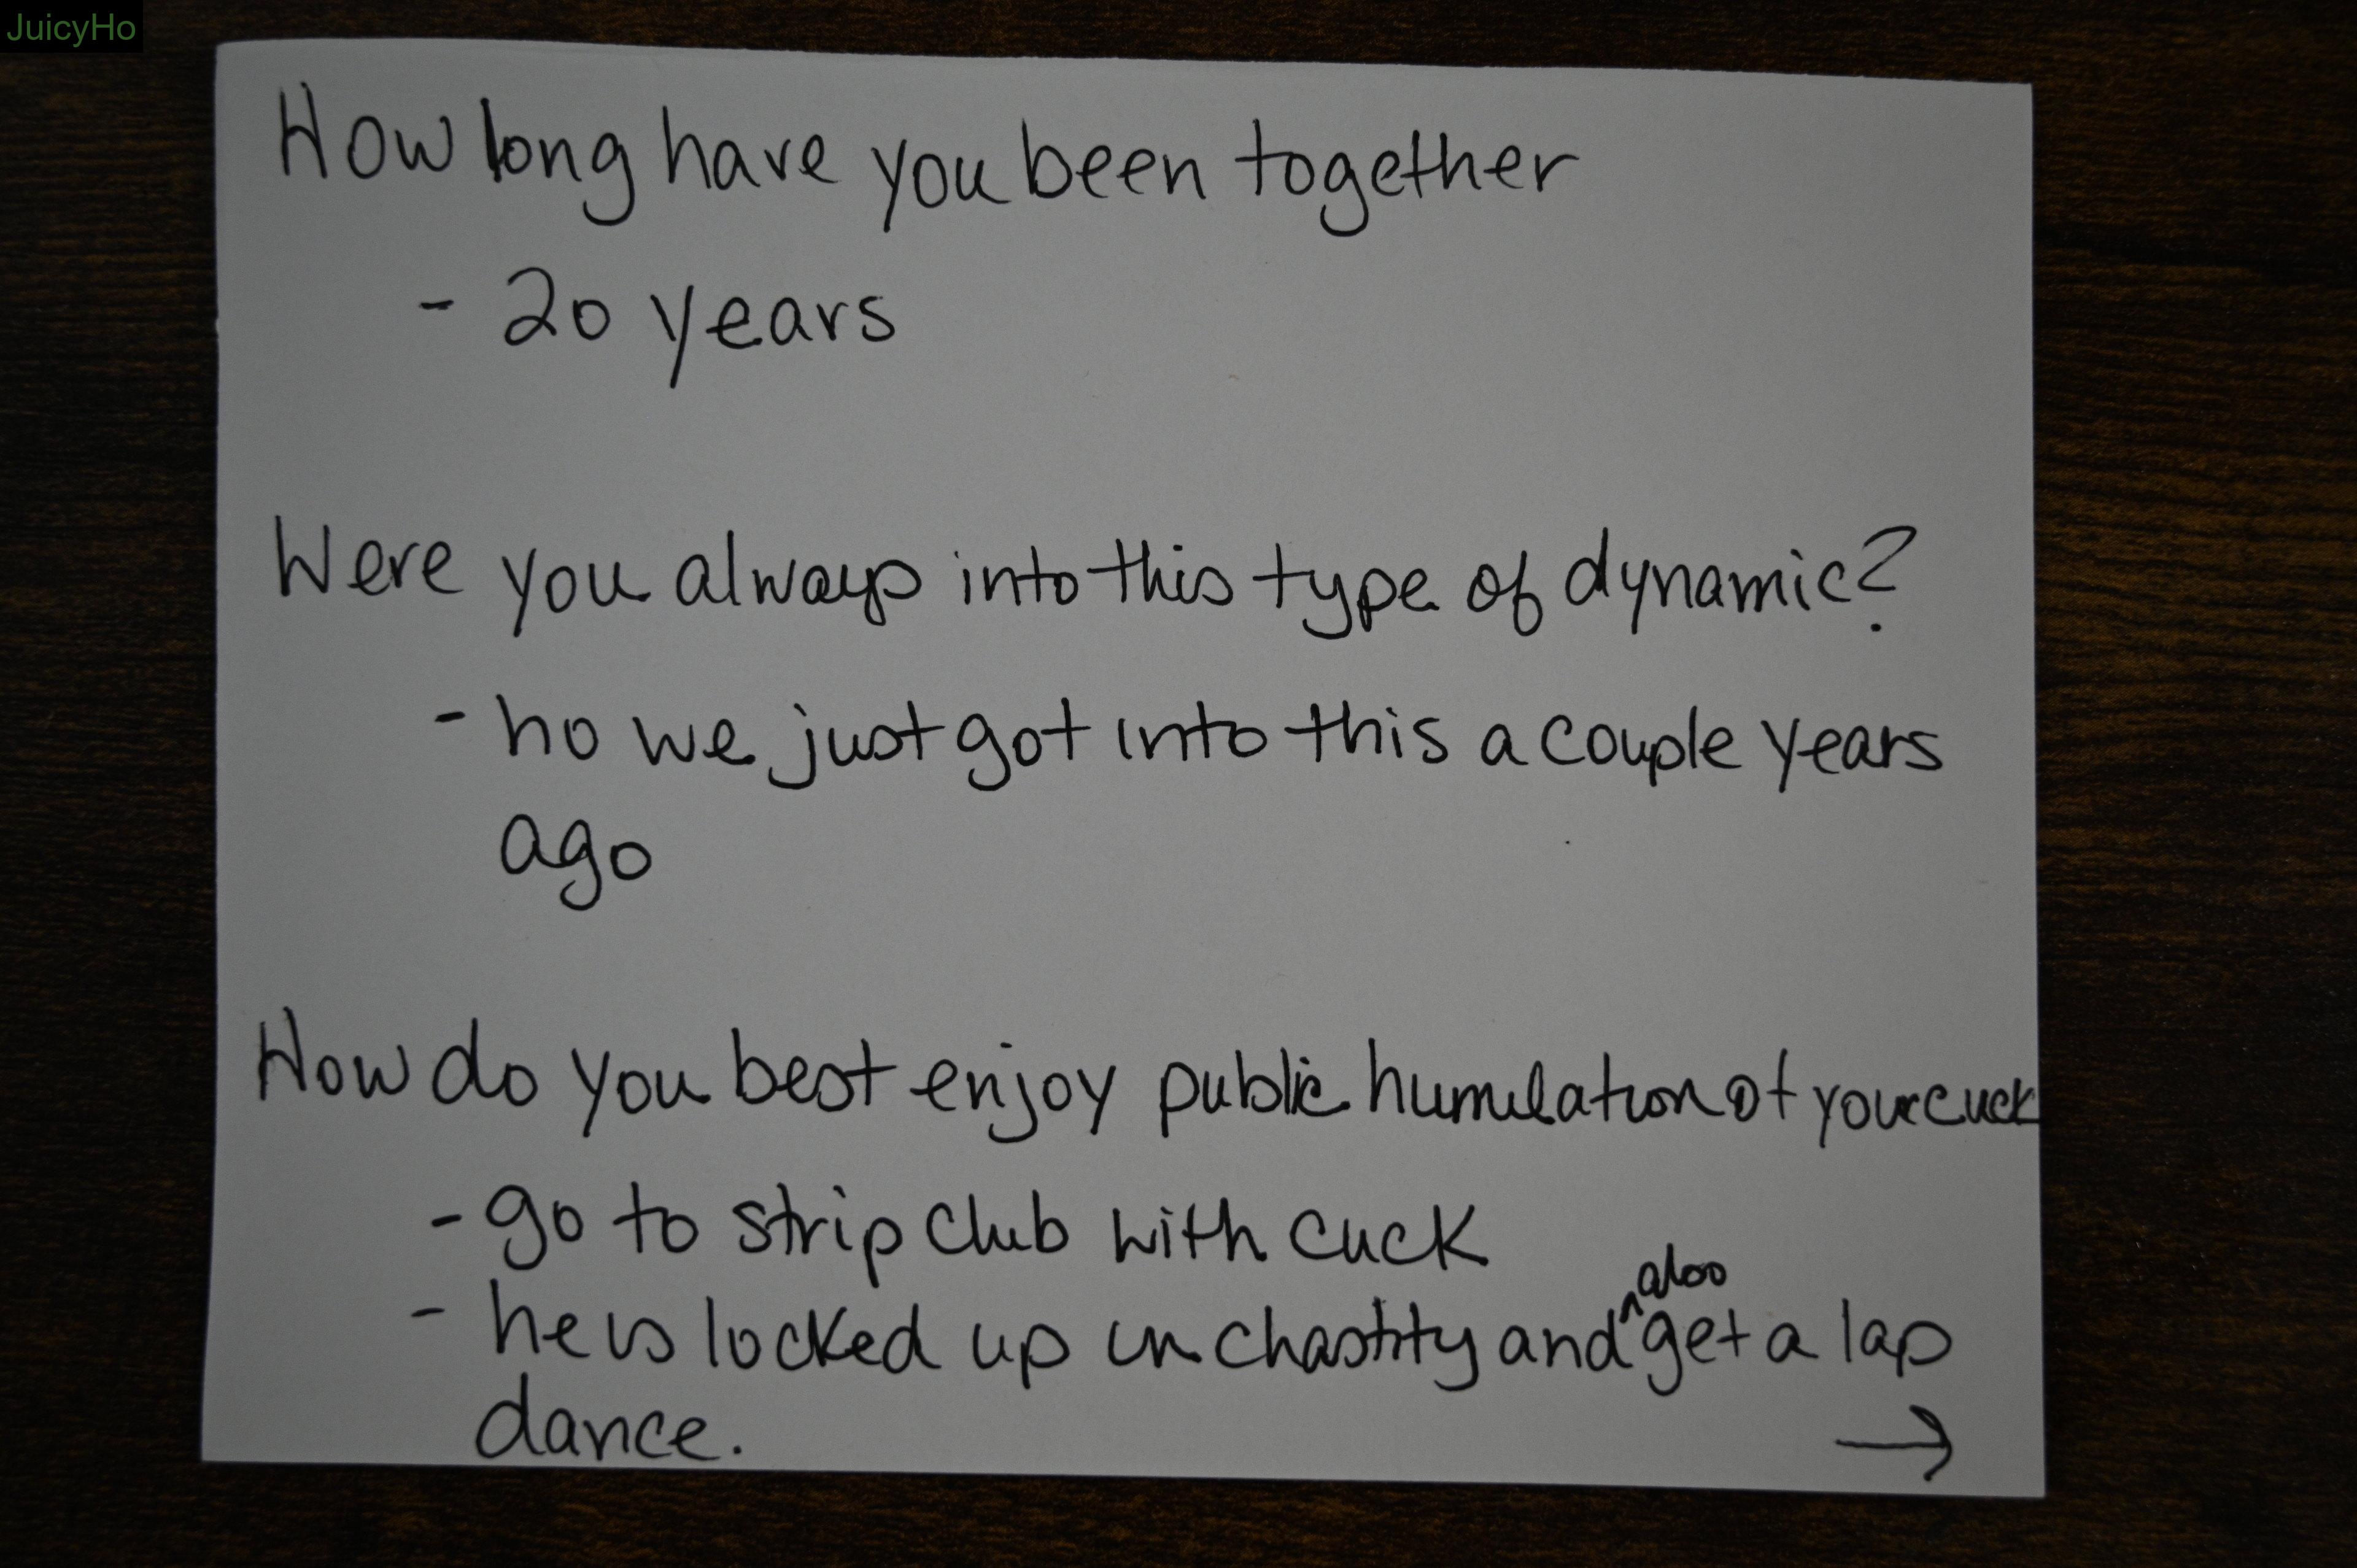 JuicyHo
How long have you been together
- 20 years
Were you always into this type of dynamic?
- no we just got into this a couple years
ago
How do you best enjoy public humilation of your cuck
- go to strip club with cuck
also
- he is locked up in chastity and ^ get a lap
dance.
→